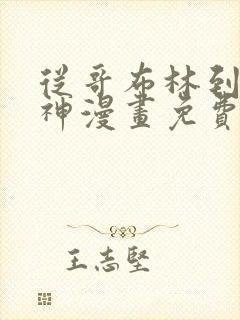 從哥布林到
神漫畫免費
王志堅